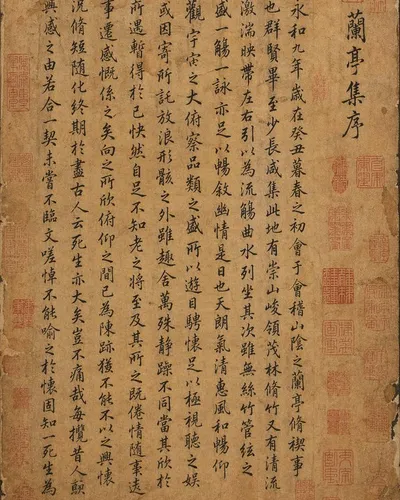 蘭亭集序
永和九年歲在癸丑暮春之初會于會稽山陰之蘭亭脩稧事
也群賢畢至少長咸集此地有崇山峻領茂林脩竹又有清流
激湍映帶左右引以為流觴曲水列坐其次雖無絲竹管絃之
盛一觴一詠亦足以暢敘幽情是日也天朗氣清惠風和暢仰
觀宇宙之大俯察品類之盛所以遊目騁懷足以極視聽之娛
或因寄所託放浪形骸之外雖趣舍萬殊靜躁不同當其欣於
所遇暫得於己快然自足不知老之將至及其所之既倦情隨事
遷感慨係之矣向之所欣俯仰之間已為陳跡猶不能不以之興懷
況脩短隨化終期於盡古人云死生亦大矣豈不痛哉每攬昔人
興感之由若合一契未嘗不臨文嗟悼不能喻之於懷固知一死生為